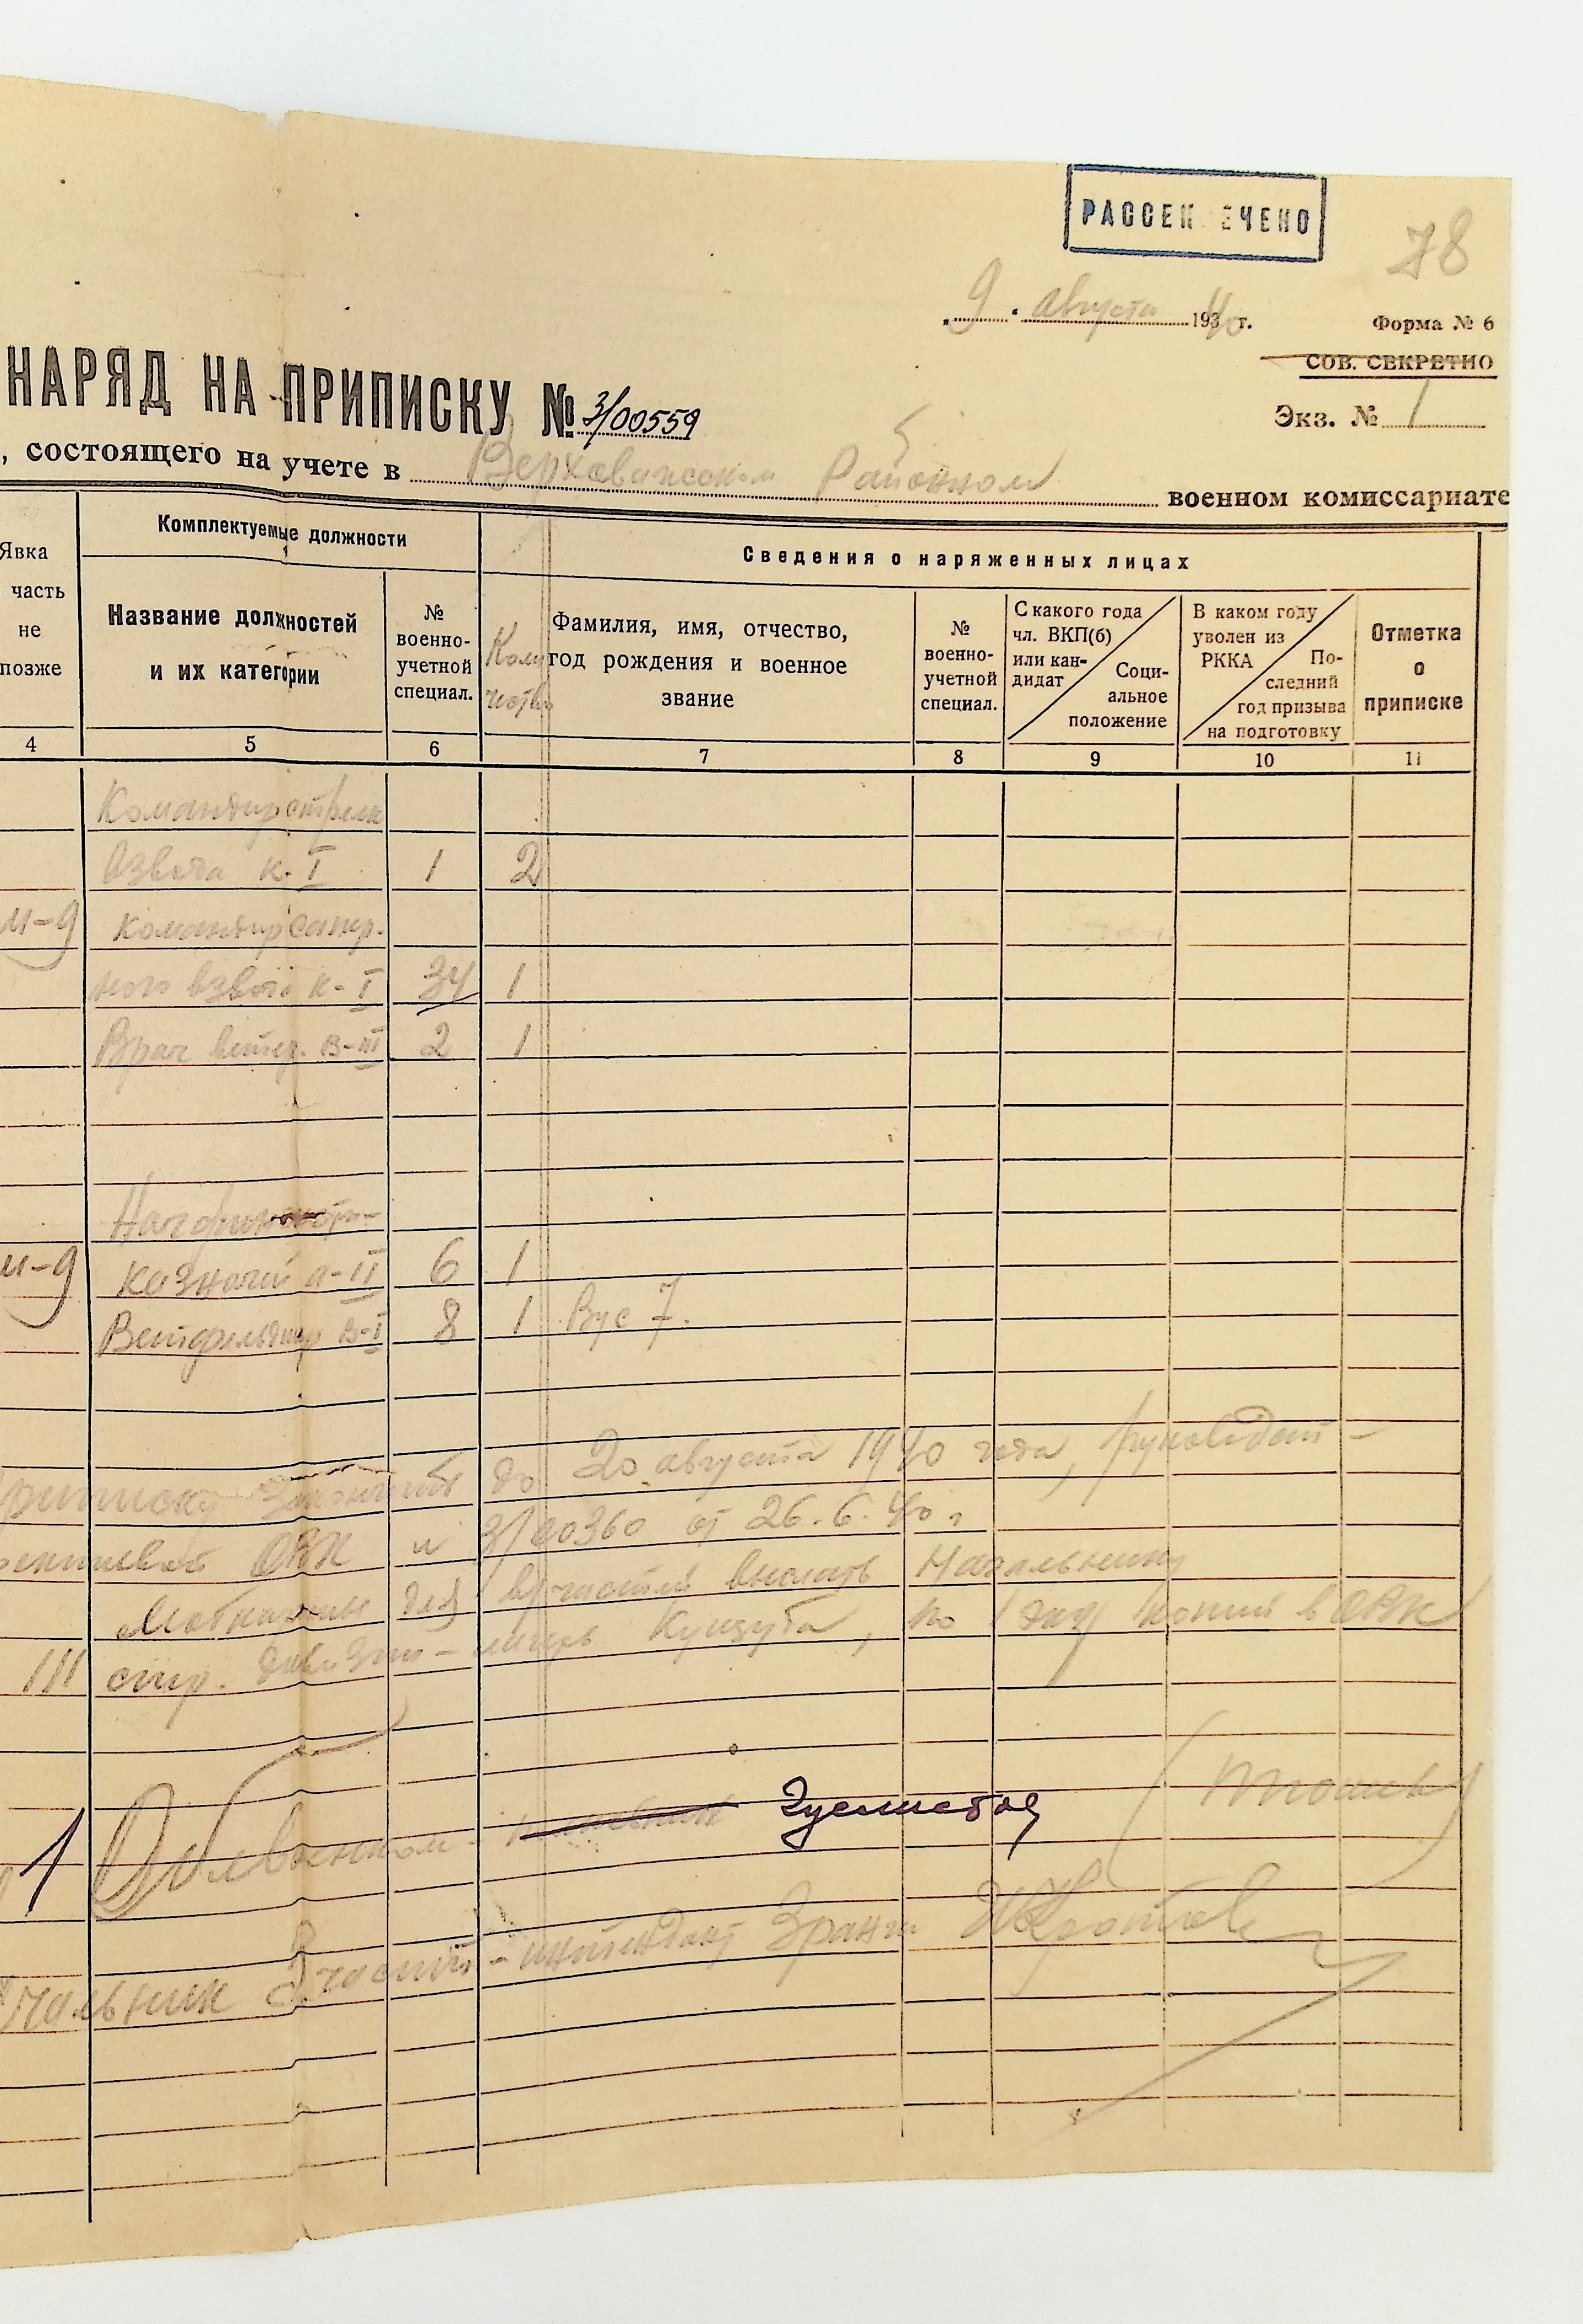 РАССЕК ЕЧЕНО
78
9. августа 1940 г.
Форма № 6
СОВ. СЕКРЕТНО
НАРЯД НА ПРИПИСКУ № 3/00559
Экз. № 1
, состоящего на учете в Верховажском Районном военном комиссариате
Явка
часть
не
позже
Комплектуемые должности
Название должностей
и их категории
№
военно-
учетной
специал.
Коли
чество
Сведения о наряженных лицах
Фамилия, имя, отчество,
год рождения и военное
звание
№
военно-
учетной
специал.
С какого года
чл. ВКП(б)
или кан-
дидат
Соци-
альное
положение
В каком году
уволен из
РККА
По-
следний
год призыва
на подготовку
Отметка
о
приписке
4 5 6 7 8 9 10 11
Командир стрелк
взвода к-I 1 2
М-9 командир сапер-
ного взвода к-I 34 1
Врач ветер. в-III 2 1
Нач фин
М-9 казначей а-II 6 1
Ветфельдшер в-I 8 1 Вус 7.
приписку закончить до 20 августа 1940 года, руководст-
ОВК и 3/00360 от 26.6.40 г
для в/частей выслать Начальнику
111 стр. дивизии - лагерь Кущуба, по 1 экз копии в ОВК
1 Облвоенком
3 части - интендант 3 ранга Кротов